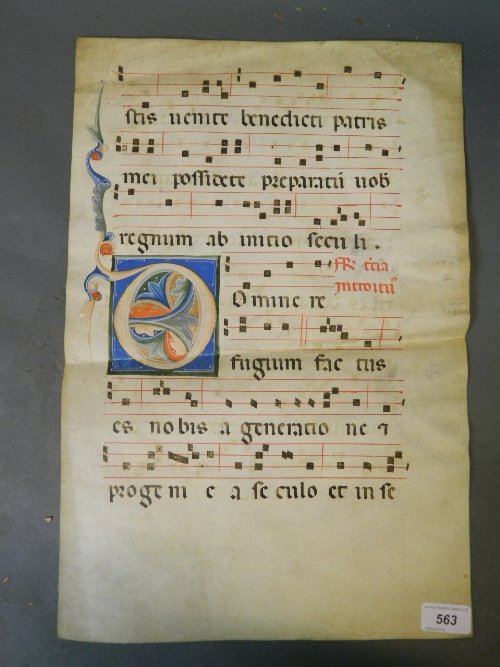 stis uenite benedicti patris
mei possidete preparatū uob
regnum ab initio seculi.
Omine re
fugium fac tus
es nobis a generatio ne ⁊
proge ni e a se culo et in se
563